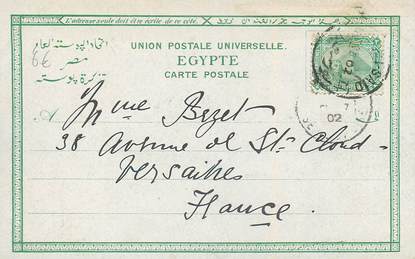 L'adresse seule doit être écrite de ce côté.
اتحاد البوستة العام
UNION POSTALE UNIVERSELLE.
مصر
EGYPTE
تذكرة بوسته
CARTE POSTALE
6€
SAID
02
7
02
Mme Bezet
38 Avenue de St. Cloud-
Versailles
France